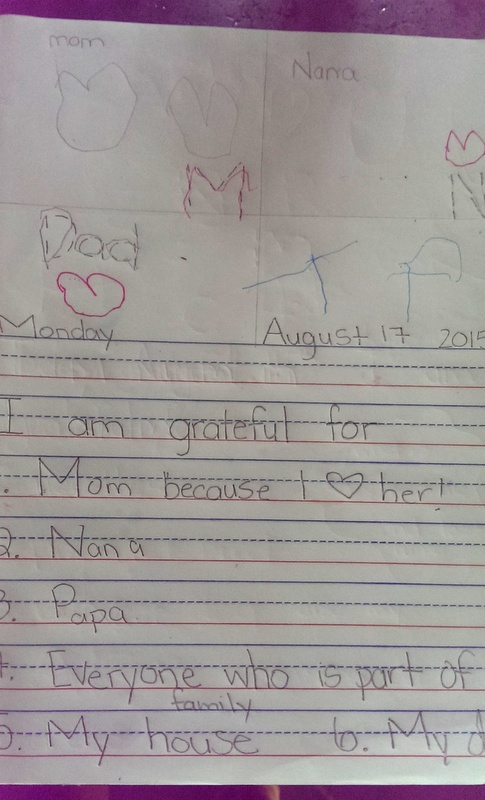 mom
Nana
M
N
Dad
T P
Monday August 17 2015
I am grateful for
. Mom because I ♡ her!
2. Nana
3. Papa
4. Everyone who is part of
family
5. My house 6. My d